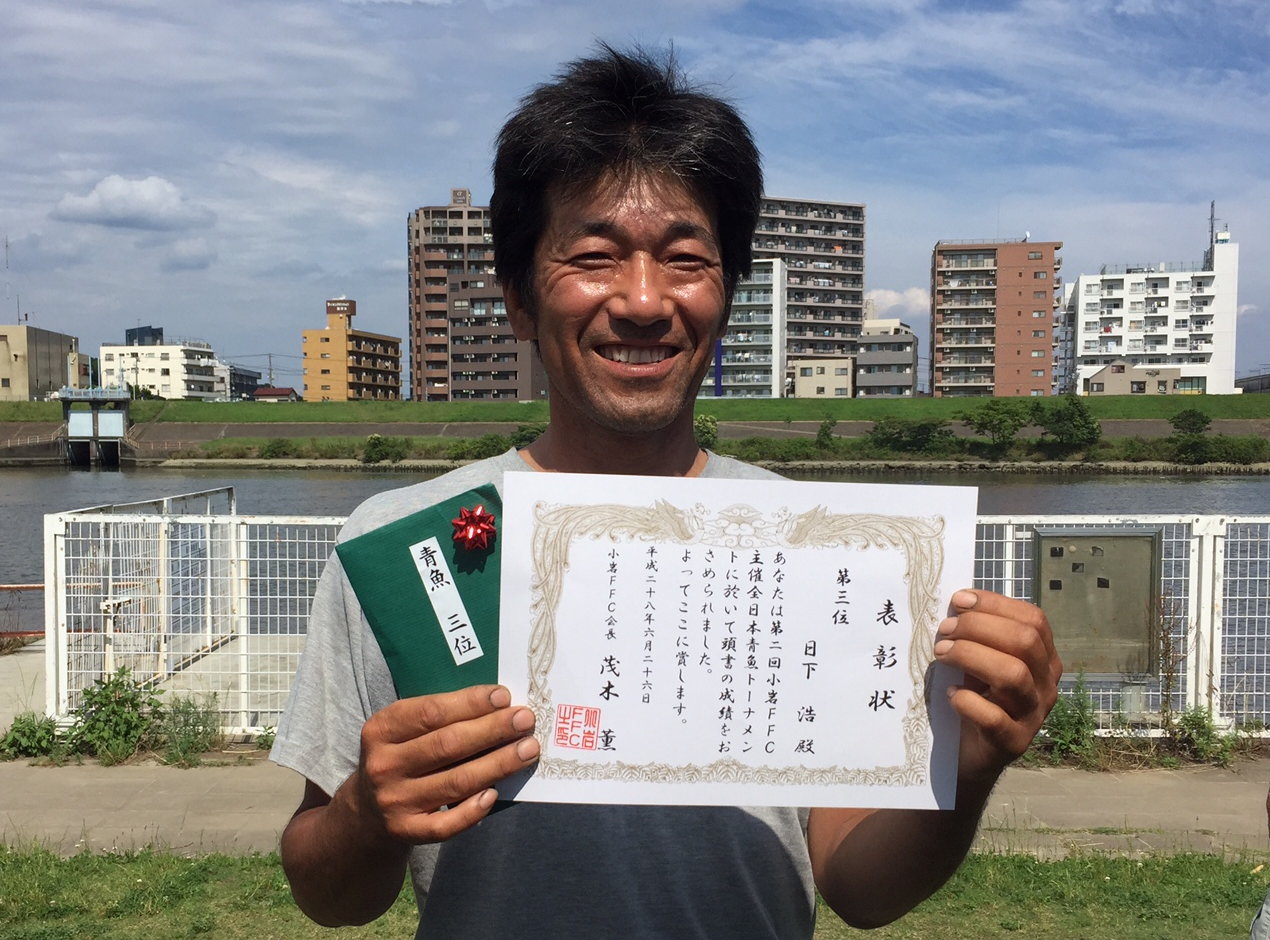 表彰状
第三位
日下 浩 殿
あなたは第二回小岩FFC
主催全日本青魚トーナメン
トに於いて頭書の成績をお
さめられました。
よってここに賞します。
平成二十八年六月二十六日
小岩FFC会長 茂木 薫
小岩
FFC
之印
青魚 三位